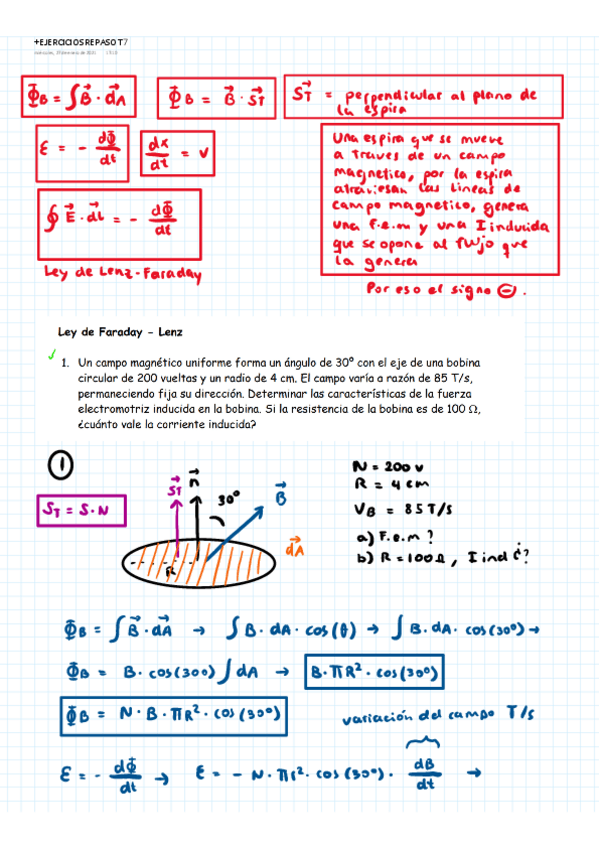 +EJERCICIOS REPASO T7
Φ_B = ∫B⃗ · dA⃗
Φ_B = B⃗ · S_T⃗
S_T⃗ = perpendicular al plano de
la espira
ε = - dΦ/dt
dx/dt = v
∮ E⃗ · dL⃗ = - dΦ/dt
Ley de Lenz-Faraday
Una espira que se mueve
a traves de un campo
magnetico, por la espira
atraviesan las lineas de
campo magnetico, genera
una f.e.m y una I inducida
que se opone al flujo que
la genera
Por eso el signo ⊖.
Ley de Faraday – Lenz
✓
1. Un campo magnético uniforme forma un ángulo de 30º con el eje de una bobina
circular de 200 vueltas y un radio de 4 cm. El campo varía a razón de 85 T/s,
permaneciendo fija su dirección. Determinar las características de la fuerza
electromotriz inducida en la bobina. Si la resistencia de la bobina es de 100 Ω,
¿cuánto vale la corriente inducida?
①
S_T = S·N
S_T⃗
n⃗
30º
B⃗
dA⃗
R
N = 200 v
R = 4 cm
V_B = 85 T/s
a) F.e.m ?
b) R = 100Ω, I ind ¿?
Φ_B = ∫B⃗ · dA⃗ → ∫B · dA · cos(θ) → ∫B · dA · cos(30º) →
Φ_B = B · cos(30º) ∫dA → B · πR² · cos(30º)
Φ_B = N · B · πR² · cos(30º)
variación del campo T/s
ε = - dΦ/dt → ε = - N · πr² · cos(30º) · dB/dt →